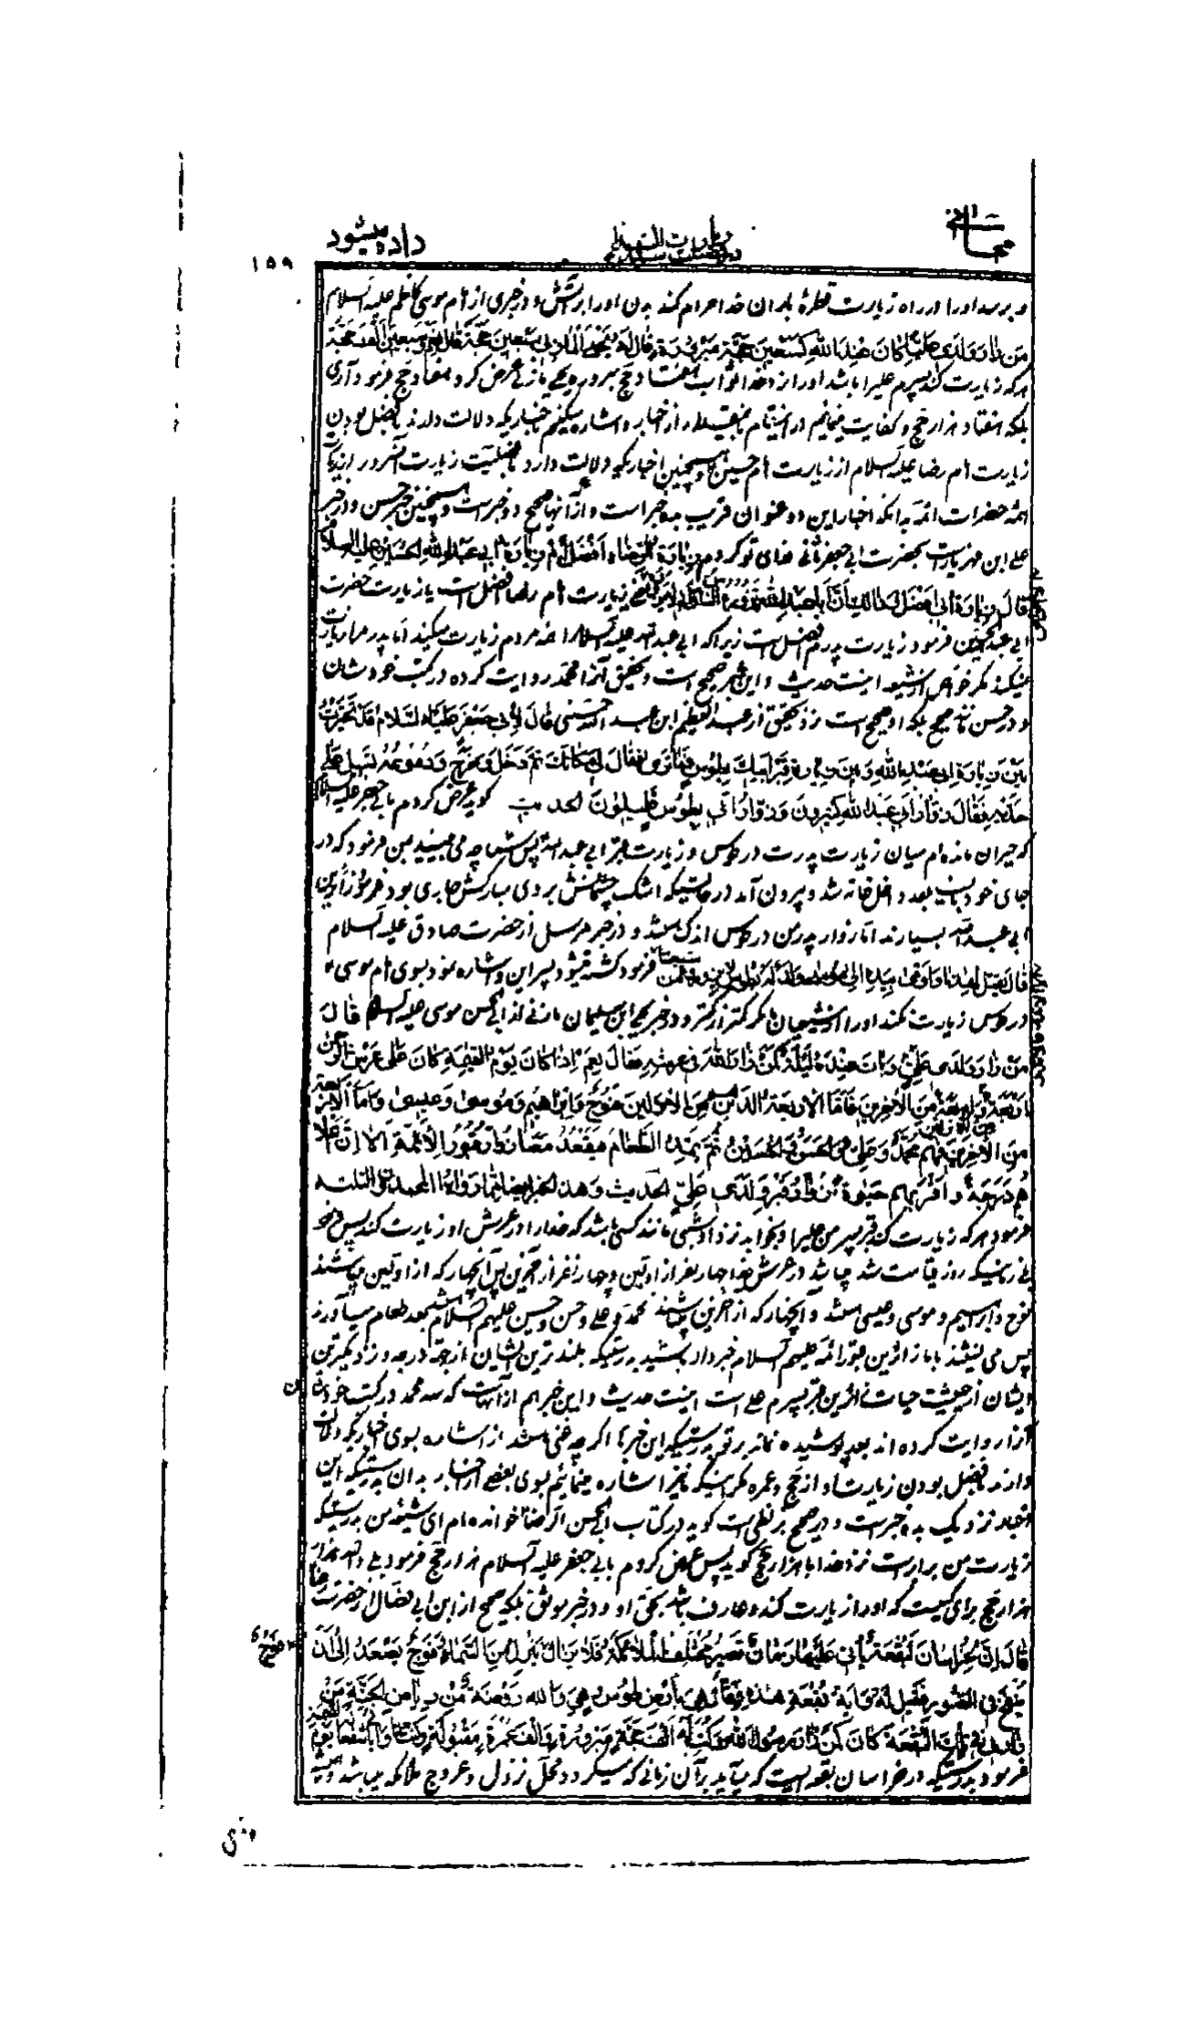 داده میشود
۱۵۹
و برسد او را در راه زیارت قطرهٔ باران خدا حرام کند بدن او را بر آتش و در خبری از امام موسی کاظم علیه السلام
من زار ولدی علیا کان عند الله کسبعین حجة مبرورة قال له یحیی المازنی سبعین حجة قال نعم و سبعین الف حجة
هر که زیارت کند پسرم علی را باشد او را نزد خدا ثواب هفتاد حج مبروره یحیی مازنی عرض کرد هفتاد حج فرمود آری
بلکه هفتاد هزار حج و کفایت مینمایم در این مقام از اخبار و اشاره میکنم باخباریکه دلالت دارند بافضل بودن
زیارت امام رضا علیه السلام از زیارت امام حسین و همچنین اخباریکه دلالت دارد بافضلیت زیارت از
همهٔ حضرات ائمه بدانکه اخبار این دو عنوان قریب بده خبر است و از آنها صحیح دو خبر است و همچنین خبر حسن و در خبر
علی ابن مهزیار است بحضرت ابی جعفر ثانی فدای تو گردم زیارة الرضاء افضل ام زیارة ابی عبد الله الحسین علیه السلام
قال زیارة ابی افضل و ذلک ان ابا عبد الله یزوره الناس زیارت امام رضا افضل است یا زیارت حضرت
ابی عبد الحسین فرمود زیارت پدرم افضل است زیرا که ابی عبد الله علیه السلام را همه مردم زیارت میکنند اما پدر مرا زیارت
نمیکند مگر خواص از شیعه اینست حدیث و این خبر صحیح است و بتحقیق آنرا محمد روایت کرده در کتب خودشان
و در حسن بلکه او صحیح است نزد تحقیق از عبد العظیم ابن عبد الله حسنی قال لابی جعفر علیه السلام قد تحیرت
بین زیارة ابی عبد الله و بین زیارة قبر ابیک بطوس فما تری فقال لی مکانک ثم دخل و خرج و دموعه تسیل علی
خدیه فقال زوار ابی عبد الله کثیرون و زوار ابی بطوس قلیلون الحدیث گوید عرض کردم بابی جعفر علیه السلام
که حیران مانده ام میان زیارت پدرت در طوس و زیارت قبر ابی عبد الله پس شما چه می بینید بمن فرمود که در
جای خود باش بعد داخل خانه شد و بیرون آمد در حالتیکه اشک چشمانش بر روی مبارکش جاری بود فرمود زائرین
ابی عبد الله بسیارند اما زوار پدر من در طوس اندک هستند و در خبر مرسل از حضرت صادق علیه السلام
قال یقتل لهذا و اومی بیده الی موسی ولد بطوس لا یزوره من شیعتنا فرمود کشته میشود پسر این و اشاره نمود بسوی امام موسی
در طوس زیارت نکند او را از شیعیان ما مگر کمتر از کمتر و در خبر یحیی ابن سلیمان مازنی از ابی الحسن موسی علیه السلام قال
من زار ولدی علی و بات عنده لیلة کمن زار الله فی عرشه فقال نعم اذا کان یوم القیمة کان علی عرش الرحمن
اربعة و اربعة من الاخرین فاما الاربعة الذین هم من الاولین فنوح و ابراهیم و موسی و عیسی و اما الاربعة
من الاخرین فهم محمد و علی و الحسن و الحسین ثم یمد الطعام فیقعد معنا زوار قبور الائمة الا ان اعلا
هم درجة و اقربهم حبوة من زار قبر ولدی علی الحدیث و هذا الخبر ایضا مما رواه المحمدون الثلثه
فرمود هر که زیارت کند قبر پسر من علی را و بخوابد نزد او شبی مانند کسی باشد که خدا را در عرش او زیارت کند پس فرمود
بلی زمانیکه روز قیامت شد میباشد در عرش خدا چهار نفر از اولین و چهار نفر از آخرین پس آنچهار که از اولین میباشند
نوح و ابراهیم و موسی و عیسی هستند و آنچهار که از آخرین میباشند محمد و علی و حسن و حسین علیهم السلام هستند بعد طعام میآورند
پس می نشینند با ما زائرین قبور ائمه علیهم السلام خبردار باشید بدرستیکه بلندترین ایشان از جهة درجه و نزدیکترین
ایشان از حیثیت حیات زائرین قبر پسرم علی است اینست حدیث و این خبر هم از آنهاست که سه محمد در کتب خودشان
آنرا روایت کرده اند بعد پوشیده نماند بر تو بدرستیکه این خبرها اگر چه غنی هستند از اشاره بسوی اخباریکه دلالت
دارند بافضل بودن زیارت او از حج و عمره مگر اینکه ما نیز اشاره مینمائیم بسوی بعضی از اخبار بدان بدرستیکه این
اخبار نزدیک بده خبر است و در صحیح بزنطی است گوید در کتاب ابی الحسن الرضا خوانده ام ای شیعه من بدرستیکه
زیارت من برابر است نزد خدا با هزار حج گوید پس عرض کردم بابی جعفر علیه السلام هزار حج فرمود بلی والله هزار
هزار حج برای کسیست که او را زیارت کند و عارف باشد بحق او و در خبر موثق بلکه صحیح از ابن ابی فضال از حضرت رضا
قال ان بخراسان لبقعة یاتی علیها زمان تصیر مختلف الملائکة فلا یزال ینزل من السماء فوج یصعد الی ان
ینفخ فی الصور فقیل له و ایة بقعة هذه فقال هی بارض طوس و هی والله روضة من ریاض الجنة من
زارنی فی تلک البقعة کان کمن زار رسول الله و کتب له الف حجة مبرورة و الف عمرة مقبولة و کنت انا و آبائی شفعائه یوم
فرمود بدرستیکه در خراسان بقعه ایست که میآید بر آن زمانی که میگردد محل نزول و عروج ملائکه میباشد